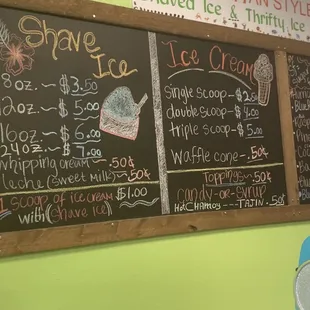 STYLE
Shaved Ice & Thrifty Ice
Shave Ice
8oz. - $3.50
12oz - $5.00
16oz - $6.00
24oz - $7.00
whipping cream - .50¢
Leche (Sweet Milk) - .50¢
1 scoop of ice cream $1.00
with (Shave Ice)
Ice Cream
single scoop - $2.50
double scoop - $4.00
triple scoop - $5.00
Waffle cone - .50¢
Toppings - .50¢
candy - or - syrup
Hot Chamoy --- TAJIN .50¢